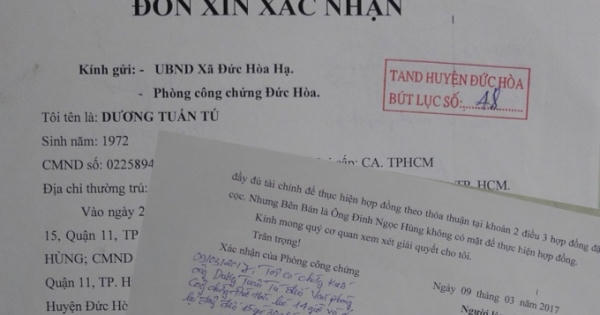 ĐƠN XIN XÁC NHẬN
Kính gửi: - UBND Xã Đức Hòa Hạ.
- Phòng công chứng Đức Hòa.
TAND HUYỆN ĐỨC HÒA
BÚT LỤC SỐ: 48
Tôi tên là: DƯƠNG TUẤN TÚ
Sinh năm: 1972
CMND số: 0225894 cấp: CA. TPHCM
Địa chỉ thường trú: TP. HCM.
Vào ngày 2
15, Quận 11, TP
HÙNG; CMND
Quận 11, TP. H
Huyện Đức Hò
đầy đủ tài chính để thực hiện hợp đồng theo thỏa thuận tại khoản 2 điều 3 hợp đồng đặ
cọc. Nhưng Bên Bán là Ông Đinh Ngọc Hùng không có mặt để thực hiện hợp đồng.
Kính mong quý cơ quan xem xét giải quyết cho tôi.
Trân trọng!
Xác nhận của Phòng công chứng
Ngày 09 tháng 03 năm 2017
09/03/2017,
ông Dương Tuấn Tú Văn phòng
công chứng